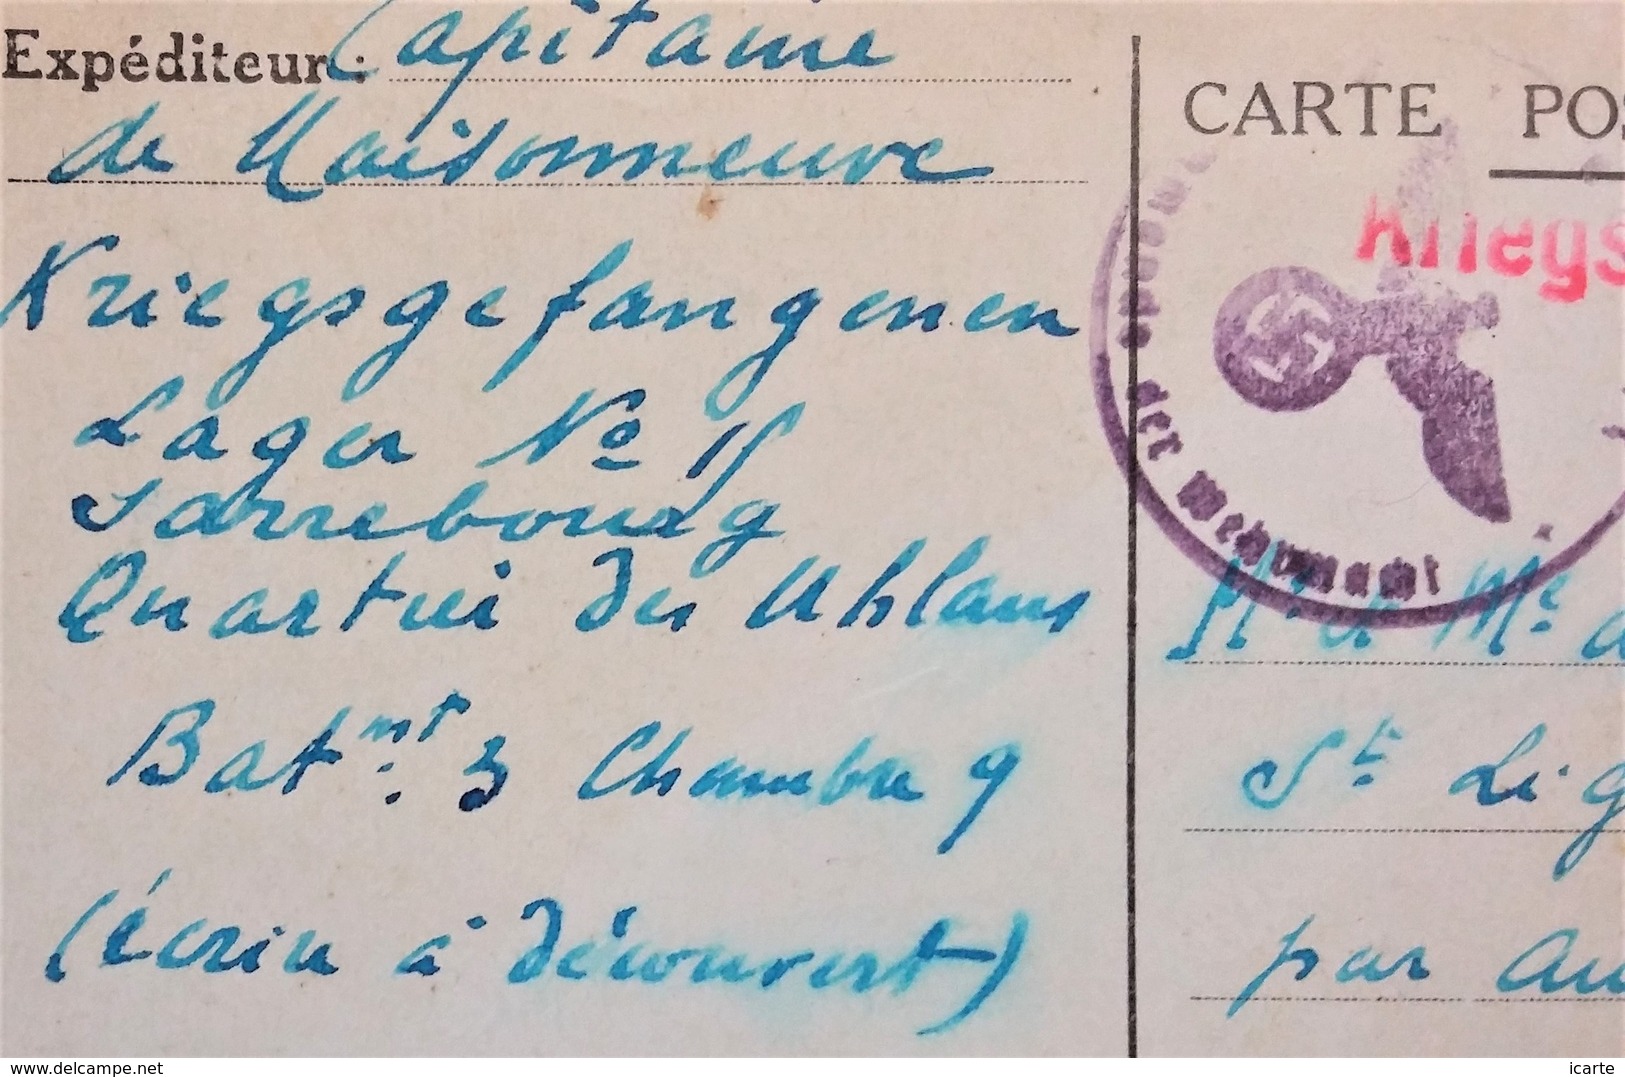 Expéditeur : Capitaine
de Maisonneuve
Kriegsgefangenen
Lager No 15
Sarrebourg
Quartier des Uhlans
Batmt. 3 Chambre 9
(écrire à découvert)
CARTE POS
Kriegs
der Wehrmacht
Mr & Me d
St Lig
par Au
www.delcampe.net
icarte